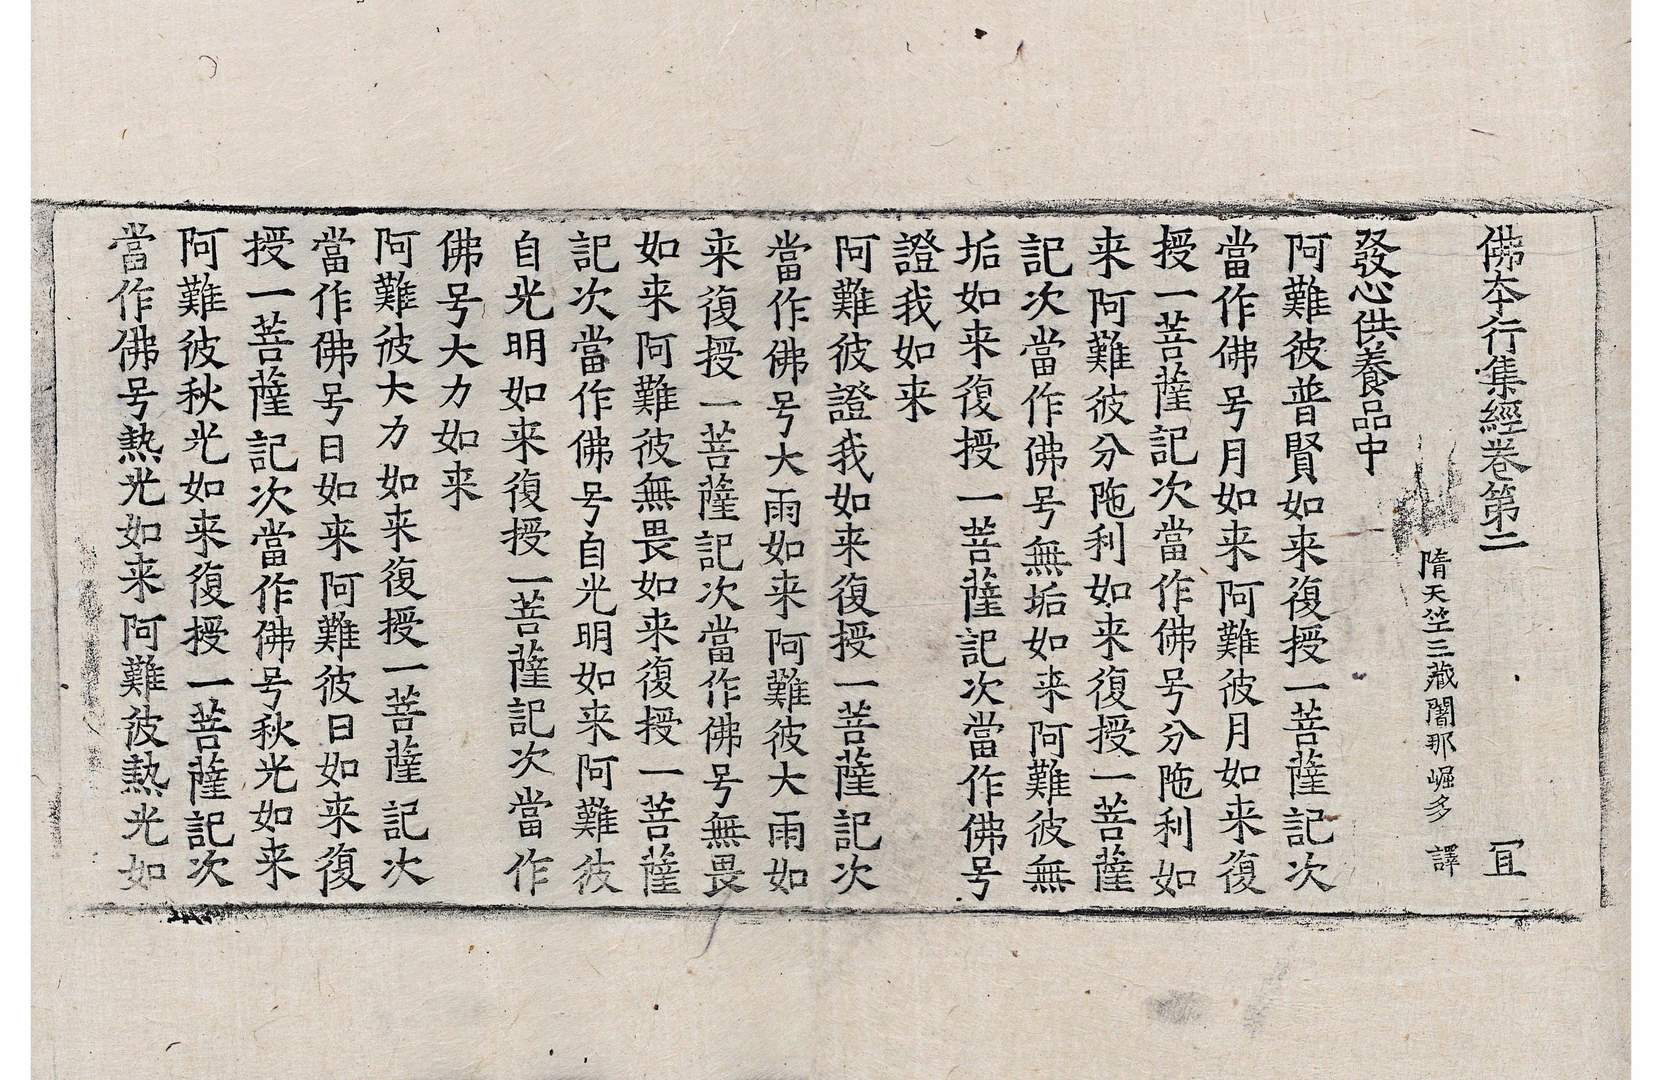 佛本行集經卷第二 冝
隋天竺三藏闍那崛多 譯
發心供養品中
阿難彼普賢如来復授一菩薩記次
當作佛号月如来阿難彼月如来復
授一菩薩記次當作佛号分陁利如
来阿難彼分陁利如来復授一菩薩
記次當作佛号無垢如来阿難彼無
垢如来復授一菩薩記次當作佛号
證我如来
阿難彼證我如来復授一菩薩記次
當作佛号大雨如来阿難彼大雨如
来復授一菩薩記次當作佛号無畏
如来阿難彼無畏如来復授一菩薩
記次當作佛号自光明如来阿難彼
自光明如来復授一菩薩記次當作
佛号大力如来
阿難彼大力如来復授一菩薩記次
當作佛号日如来阿難彼日如来復
授一菩薩記次當作佛号秋光如来
阿難彼秋光如来復授一菩薩記次
當作佛号熱光如来阿難彼熱光如